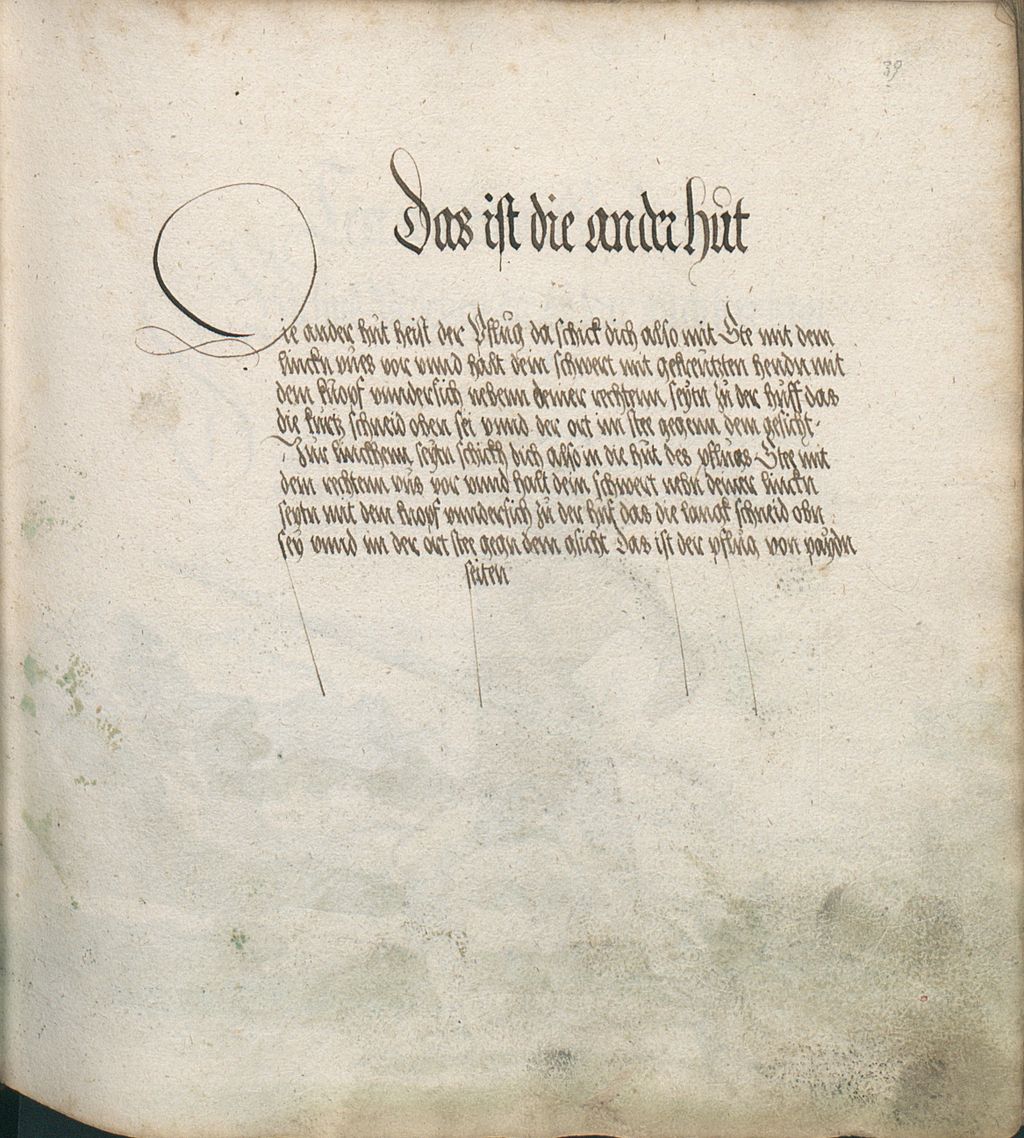 39
Das ist die ander hut
Die ander hut heist der Pflug da schick dich also mit Ste mit dem
linckn vues vor vnnd halt dein schwert mit gekreutzten hendn mit
dem knopf vundersich nebenn deiner rechtenn seytn zu der huff das
die kurtz schneid oben sei vnnd der ort im stee gegenn dem gesicht.
Zur linckhenn seytn schickh dich also in die hut des pflugs Stee mit
dem rechtenn vus vor vnnd halt dein schwert nebn deiner linckn
seytn mit dem knopf vundersich zu der huf das die langk schneid obn
sey vnnd im der ort stee gegn dem gsicht Das ist der pflug von paydn
seiten